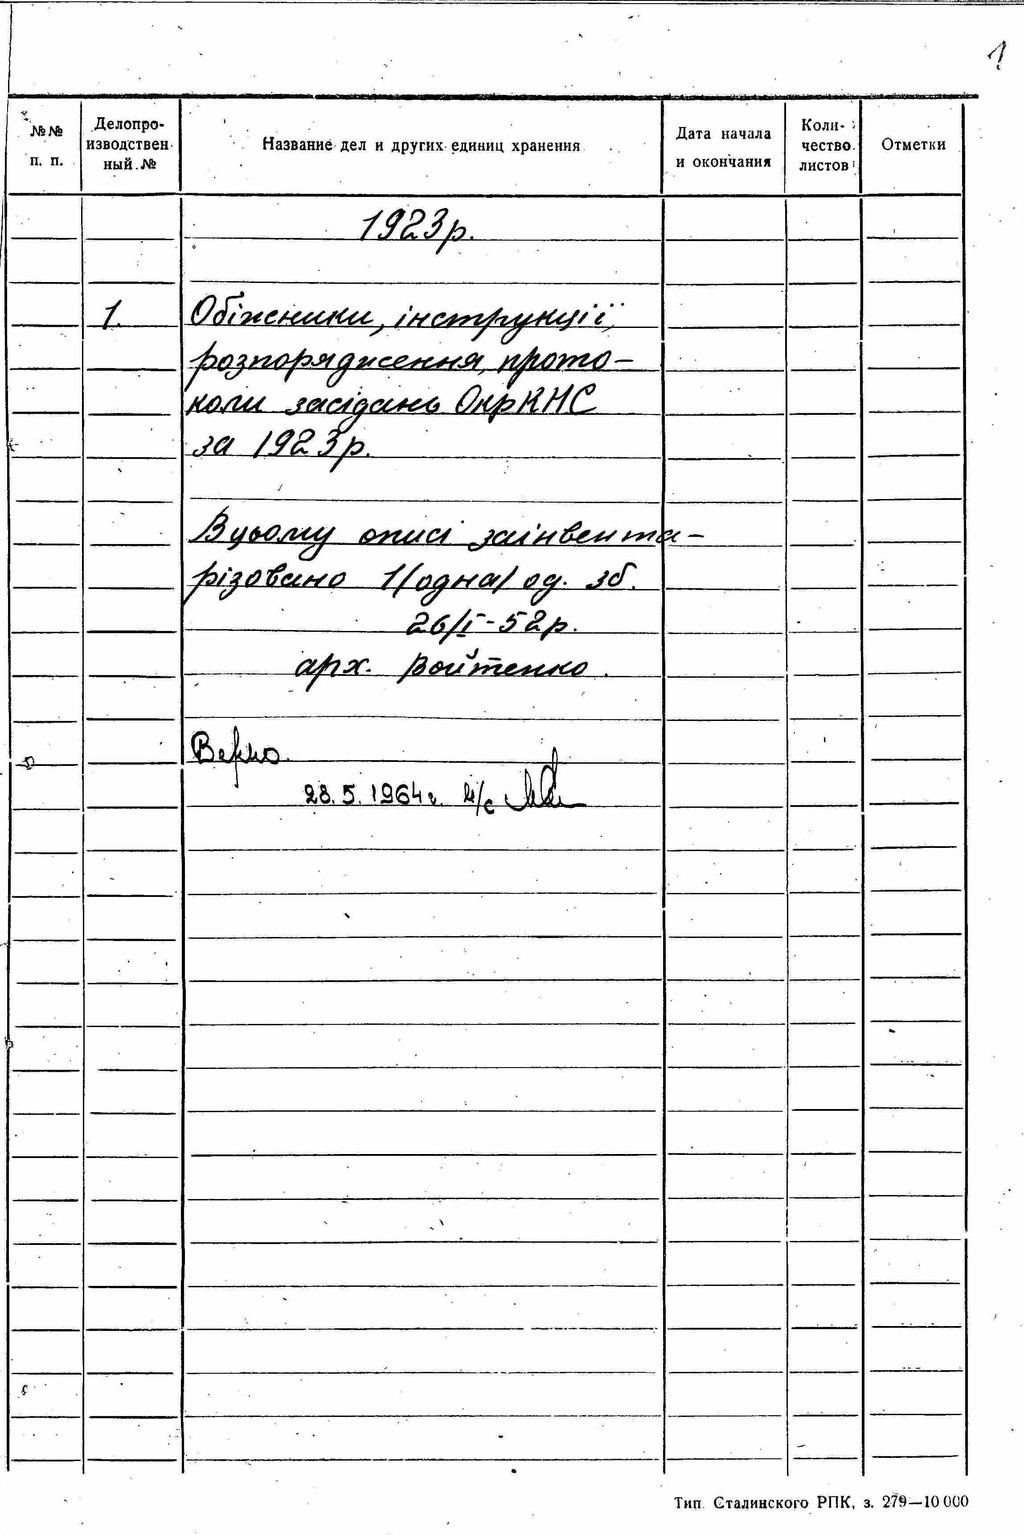 1
№№ п. п.
Делопро-изводствен ный №
Название дел и других единиц хранения
Дата начала и окончания
Коли-чество листов
Отметки
1923р.
1. Обіжники, інструкції,
розпорядження, прото-
коли засідань ОкрКНС
за 1923р.
В цьому описі заінвента-
різовано 1/одна/ од. зб.
26/I-52р.
арх. Войтенко.
Верно.
28.5.1964г.
Тип. Сталинского РПК, з. 279—10000